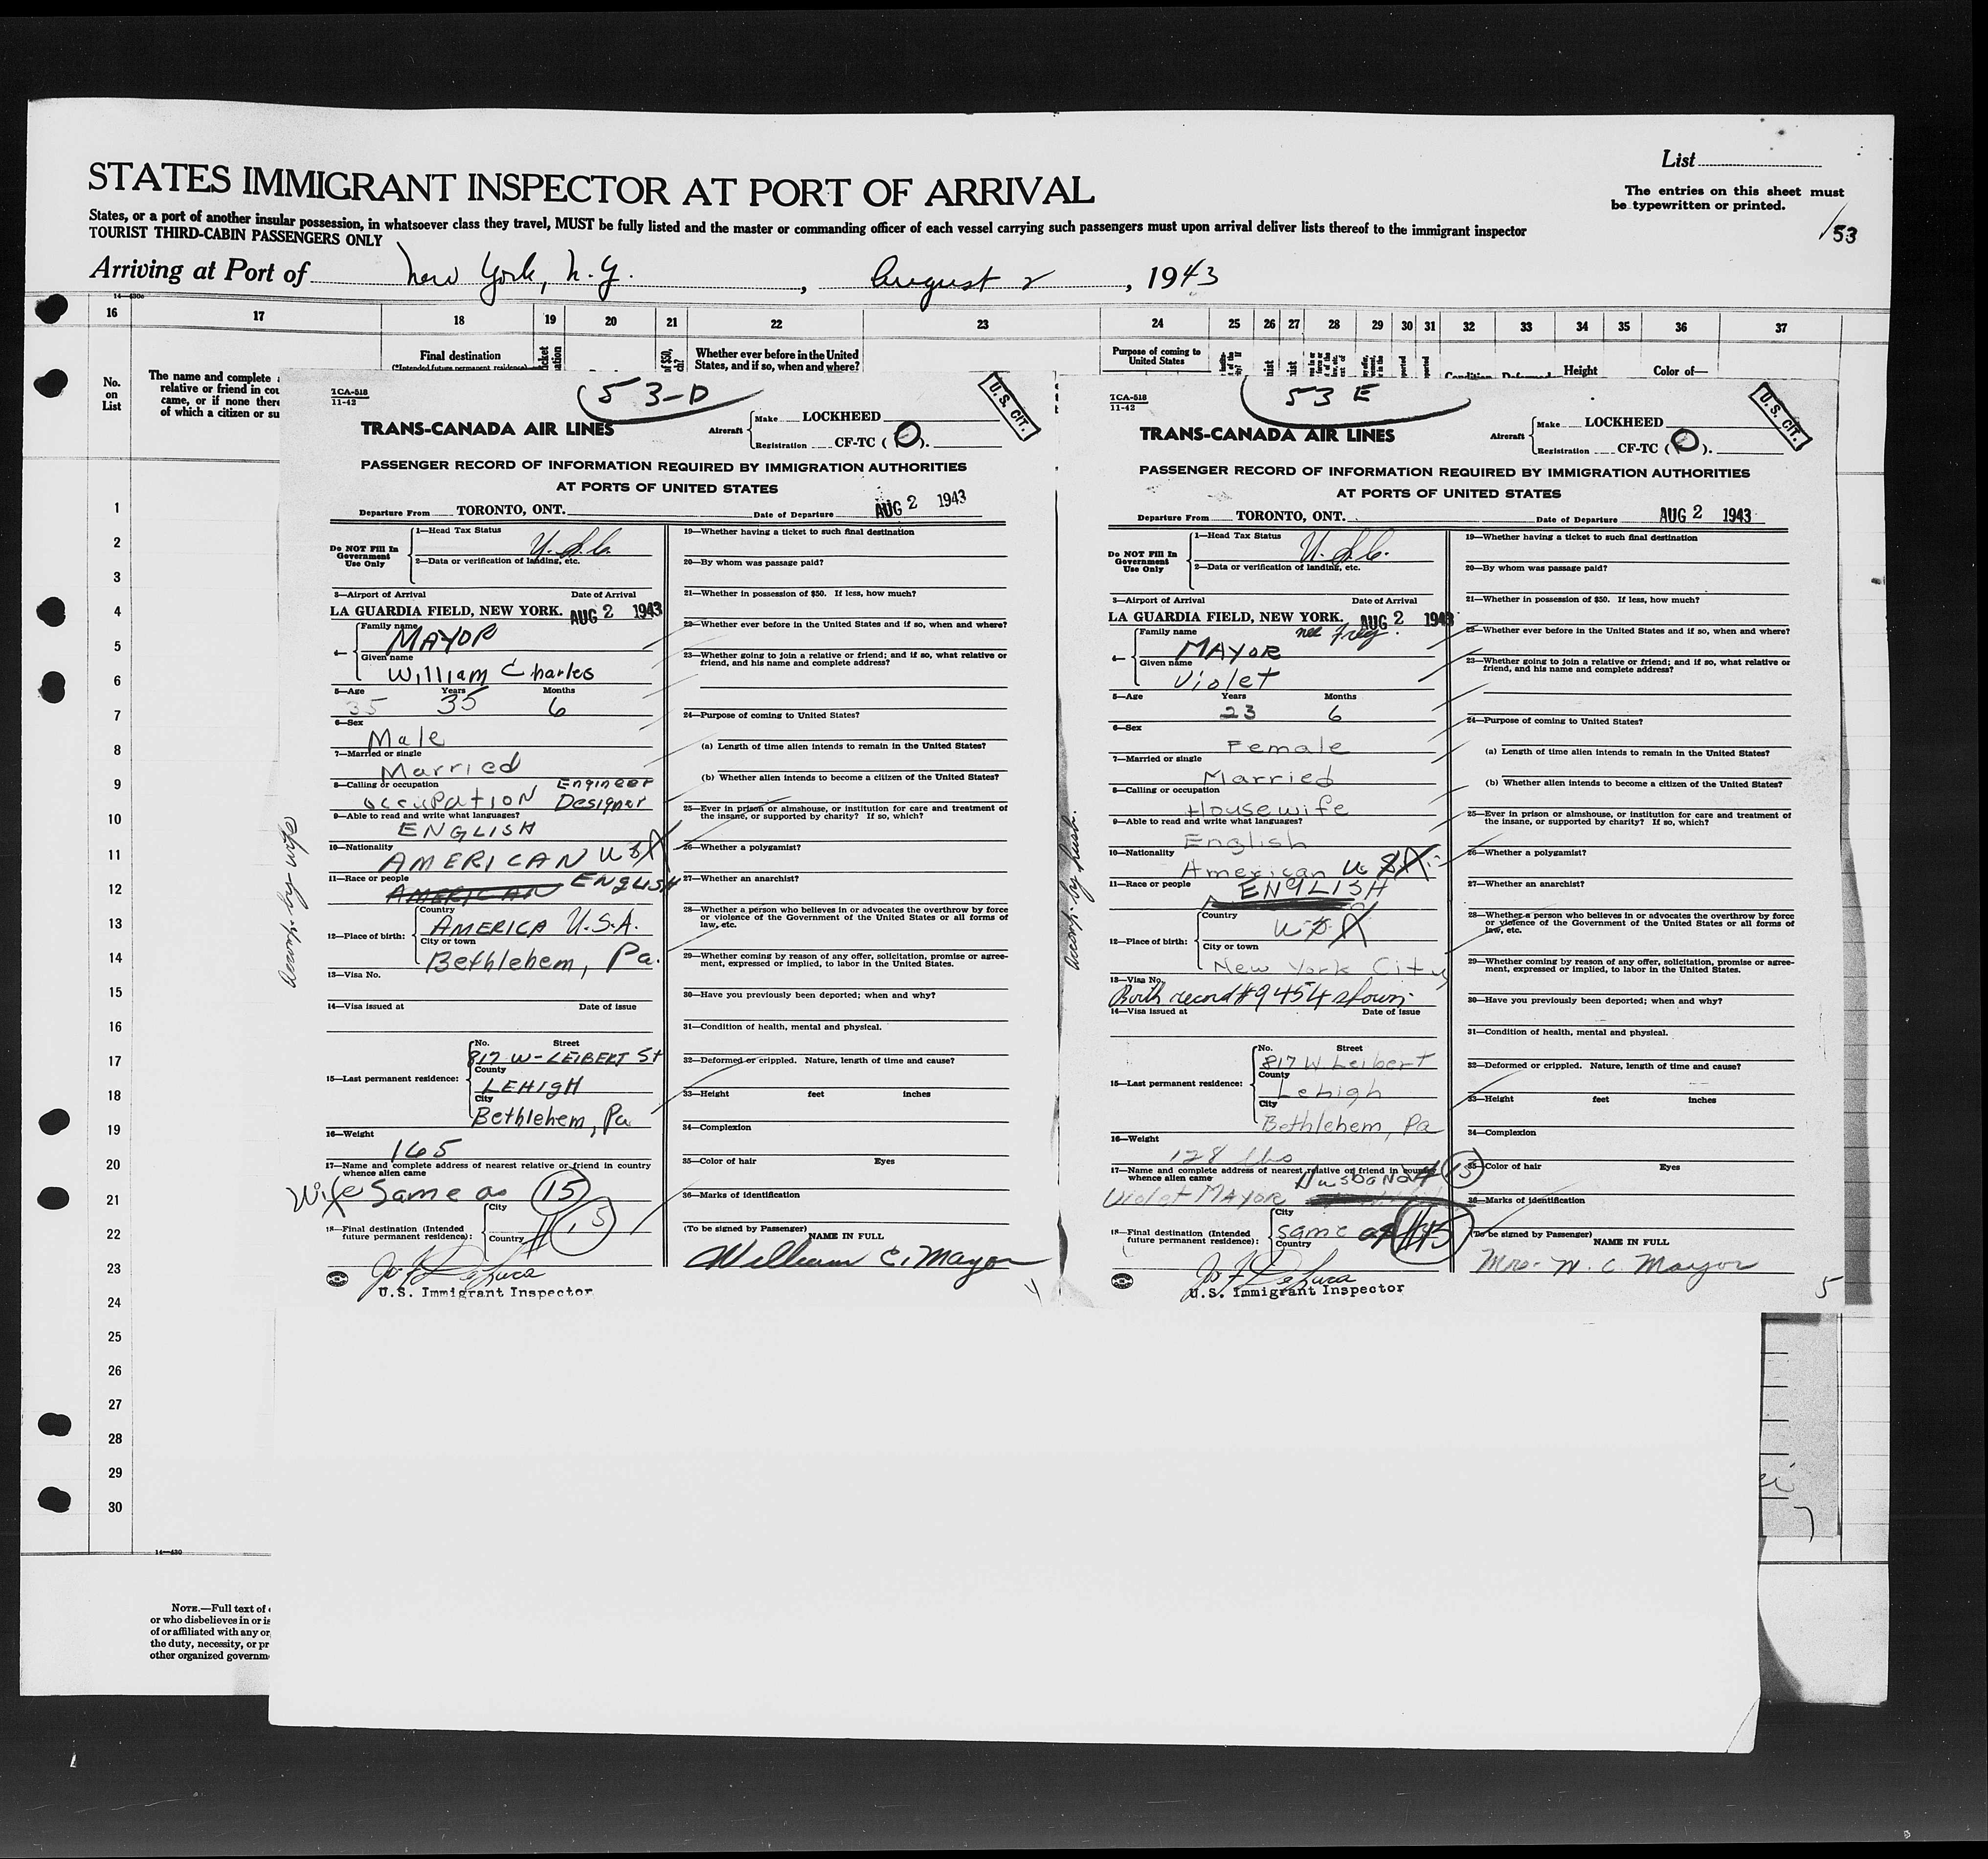 List
STATES IMMIGRANT INSPECTOR AT PORT OF ARRIVAL
The entries on this sheet must
be typewritten or printed.
States, or a port of another insular possession, in whatsoever class they travel, MUST be fully listed and the master or commanding officer of each vessel carrying such passengers must upon arrival deliver lists thereof to the immigrant inspector
TOURIST THIRD-CABIN PASSENGERS ONLY
53
Arriving at Port of New York, N.Y. , August 2 , 1943
16 17 18 19 20 21 22 23 24 25 26 27 28 29 30 31 32 33 34 35 36 37
No.
on
List
The name and complete
relative or friend in cou
came, or if none there
of which a citizen or su
Final destination
(Intended future permanent residence)
Whether ever before in the United
States, and if so, when and where?
Purpose of coming to
United States
Condition
Deformed
Height
Color of—
1
2
3
4
5
6
7
8
9
10
11
12
13
14
15
16
17
18
19
20
21
22
23
24
25
26
27
28
29
30
14—430
NOTE.—Full text of
or who disbelieves in or is
of or affiliated with any or
the duty, necessity, or pr
other organized governm
TCA-518
11-42
53-D
U.S. CIT.
TRANS-CANADA AIR LINES
Aircraft
Make LOCKHEED
Registration CF-TC (O).
PASSENGER RECORD OF INFORMATION REQUIRED BY IMMIGRATION AUTHORITIES
AT PORTS OF UNITED STATES
Departure From TORONTO, ONT. Date of Departure AUG 2 1943
Do NOT Fill In
Government
Use Only
1—Head Tax Status
U.S.C.
2—Data or verification of landing, etc.
3—Airport of Arrival Date of Arrival
LA GUARDIA FIELD, NEW YORK. AUG 2 1943
4—
Family name
MAYOR
Given name
William Charles
5—Age Years Months
35 35 6
6—Sex
Male
7—Married or single
Married
8—Calling or occupation Engineer
occupation Designer
9—Able to read and write what languages?
ENGLISH
10—Nationality
AMERICAN USA
11—Race or people
AMERICAN ENGLISH
12—Place of birth:
Country
AMERICA U.S.A.
City or town
Bethlehem, Pa.
13—Visa No.
14—Visa issued at Date of issue
15—Last permanent residence:
No. Street
817 W-LEIBERT St
County
LEHIGH
City
Bethlehem, Pa
16—Weight
165
17—Name and complete address of nearest relative or friend in country
whence alien came
Wife Same as 15
18—Final destination (Intended
future permanent residence):
City
Country
# 15
Jos F DeLuca
U.S. Immigrant Inspector
Accomp. by wife
19—Whether having a ticket to such final destination
20—By whom was passage paid?
21—Whether in possession of $50. If less, how much?
22—Whether ever before in the United States and if so, when and where?
23—Whether going to join a relative or friend; and if so, what relative or
friend, and his name and complete address?
24—Purpose of coming to United States?
(a) Length of time alien intends to remain in the United States?
(b) Whether alien intends to become a citizen of the United States?
25—Ever in prison or almshouse, or institution for care and treatment of
the insane, or supported by charity? If so, which?
26—Whether a polygamist?
27—Whether an anarchist?
28—Whether a person who believes in or advocates the overthrow by force
or violence of the Government of the United States or all forms of
law, etc.
29—Whether coming by reason of any offer, solicitation, promise or agree-
ment, expressed or implied, to labor in the United States.
30—Have you previously been deported; when and why?
31—Condition of health, mental and physical.
32—Deformed or crippled. Nature, length of time and cause?
33—Height feet inches
34—Complexion
35—Color of hair Eyes
36—Marks of identification
(To be signed by Passenger)
NAME IN FULL
William C. Mayor
4
TCA-518
11-42
53 E
U.S. CIT.
TRANS-CANADA AIR LINES
Aircraft
Make LOCKHEED
Registration CF-TC (O).
PASSENGER RECORD OF INFORMATION REQUIRED BY IMMIGRATION AUTHORITIES
AT PORTS OF UNITED STATES
Departure From TORONTO, ONT. Date of Departure AUG 2 1943
Do NOT Fill In
Government
Use Only
1—Head Tax Status
U.S.C.
2—Data or verification of landing, etc.
3—Airport of Arrival Date of Arrival
LA GUARDIA FIELD, NEW YORK. AUG 2 1943
4—
Family name nee Frey.
MAYOR
Given name
Violet
5—Age Years Months
23 6
6—Sex
Female
7—Married or single
Married
8—Calling or occupation
Housewife
9—Able to read and write what languages?
English
10—Nationality
American USA
11—Race or people
ENGLISH
12—Place of birth:
Country
USA
City or town
New York City
13—Visa No.
Birth record #9454 shown
14—Visa issued at Date of issue
15—Last permanent residence:
No. Street
817 W Leibert
County
Lehigh
City
Bethlehem, Pa
16—Weight
128 lbs
17—Name and complete address of nearest relative or friend in country
whence alien came Husband # 15
Violet Mayor
18—Final destination (Intended
future permanent residence):
City
same as #15
Country
Jos F DeLuca
U.S. Immigrant Inspector
Accomp. by husb.
19—Whether having a ticket to such final destination
20—By whom was passage paid?
21—Whether in possession of $50. If less, how much?
22—Whether ever before in the United States and if so, when and where?
23—Whether going to join a relative or friend; and if so, what relative or
friend, and his name and complete address?
24—Purpose of coming to United States?
(a) Length of time alien intends to remain in the United States?
(b) Whether alien intends to become a citizen of the United States?
25—Ever in prison or almshouse, or institution for care and treatment of
the insane, or supported by charity? If so, which?
26—Whether a polygamist?
27—Whether an anarchist?
28—Whether a person who believes in or advocates the overthrow by force
or violence of the Government of the United States or all forms of
law, etc.
29—Whether coming by reason of any offer, solicitation, promise or agree-
ment, expressed or implied, to labor in the United States.
30—Have you previously been deported; when and why?
31—Condition of health, mental and physical.
32—Deformed or crippled. Nature, length of time and cause?
33—Height feet inches
34—Complexion
35—Color of hair Eyes
36—Marks of identification
(To be signed by Passenger)
NAME IN FULL
Mrs. W. C. Mayor
5